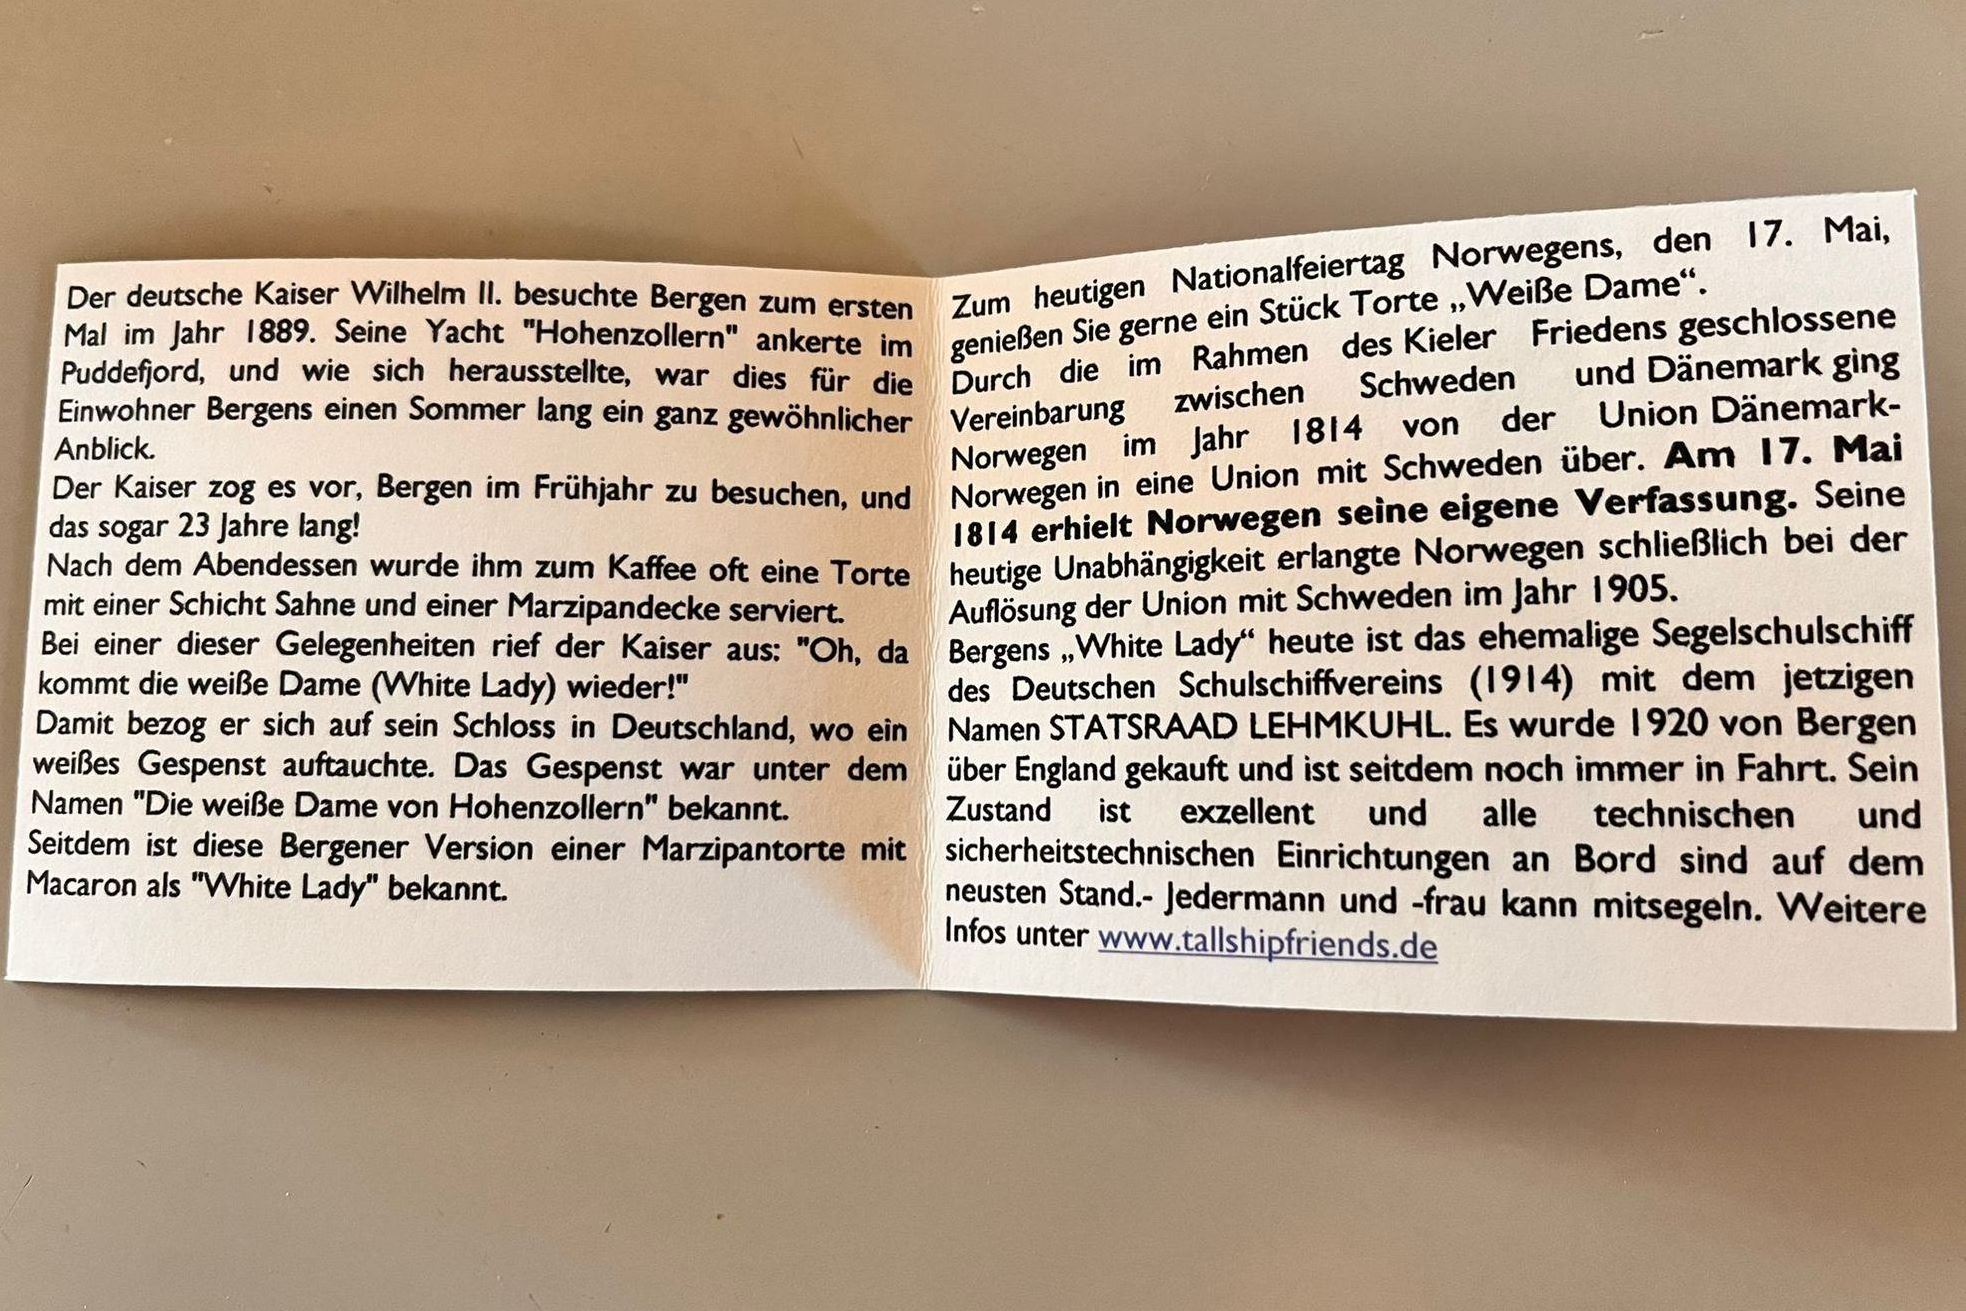 Der deutsche Kaiser Wilhelm II. besuchte Bergen zum ersten
Mal im Jahr 1889. Seine Yacht "Hohenzollern" ankerte im
Puddefjord, und wie sich herausstellte, war dies für die
Einwohner Bergens einen Sommer lang ein ganz gewöhnlicher
Anblick.
Der Kaiser zog es vor, Bergen im Frühjahr zu besuchen, und
das sogar 23 Jahre lang!
Nach dem Abendessen wurde ihm zum Kaffee oft eine Torte
mit einer Schicht Sahne und einer Marzipandecke serviert.
Bei einer dieser Gelegenheiten rief der Kaiser aus: "Oh, da
kommt die weiße Dame (White Lady) wieder!"
Damit bezog er sich auf sein Schloss in Deutschland, wo ein
weißes Gespenst auftauchte. Das Gespenst war unter dem
Namen "Die weiße Dame von Hohenzollern" bekannt.
Seitdem ist diese Bergener Version einer Marzipantorte mit
Macaron als "White Lady" bekannt.
Zum heutigen Nationalfeiertag Norwegens, den 17. Mai,
genießen Sie gerne ein Stück Torte „Weiße Dame“.
Durch die im Rahmen des Kieler Friedens geschlossene
Vereinbarung zwischen Schweden und Dänemark ging
Norwegen im Jahr 1814 von der Union Dänemark-
Norwegen in eine Union mit Schweden über. Am 17. Mai
1814 erhielt Norwegen seine eigene Verfassung. Seine
heutige Unabhängigkeit erlangte Norwegen schließlich bei der
Auflösung der Union mit Schweden im Jahr 1905.
Bergens „White Lady“ heute ist das ehemalige Segelschulschiff
des Deutschen Schulschiffvereins (1914) mit dem jetzigen
Namen STATSRAAD LEHMKUHL. Es wurde 1920 von Bergen
über England gekauft und ist seitdem noch immer in Fahrt. Sein
Zustand ist exzellent und alle technischen und
sicherheitstechnischen Einrichtungen an Bord sind auf dem
neusten Stand.- Jedermann und -frau kann mitsegeln. Weitere
Infos unter www.tallshipfriends.de